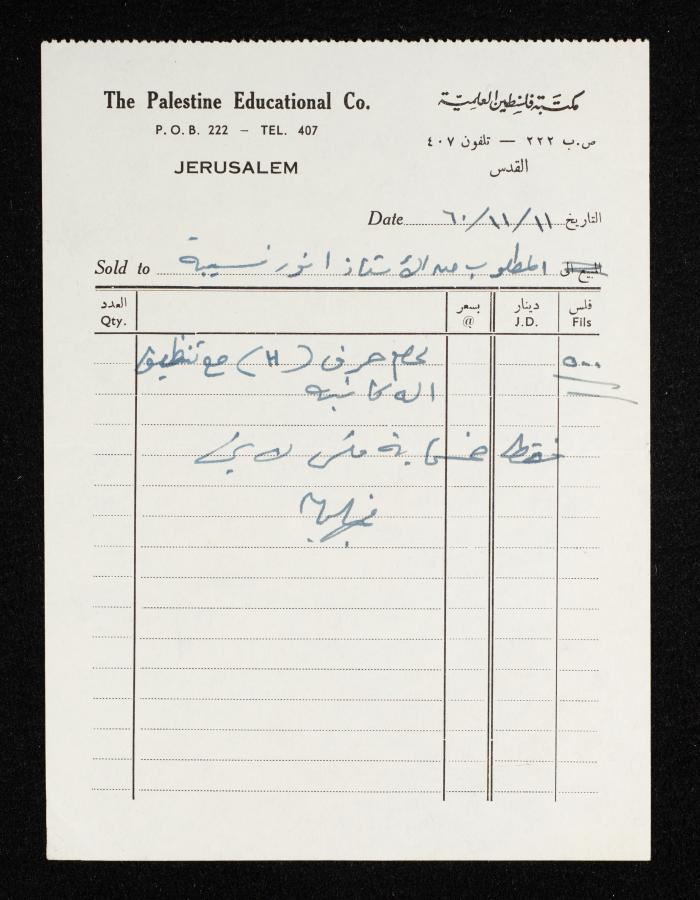 The Palestine Educational Co.
مكتبة فلسطين العلمية
P.O.B. 222 — TEL. 407
ص.ب ٢٢٢ — تلفون ٤٠٧
JERUSALEM
القدس
Date ٦٠/١١/١١ التاريخ
Sold to المطلوب من الأستاذ انور نسيبة المبيع الى
العدد بسعر دينار فلس
Qty. @ J.D. Fils
لحام حرف (H) مع تنظيف ٥٠٠
الة كاتبة
فقط خمسماية فلس لا غير